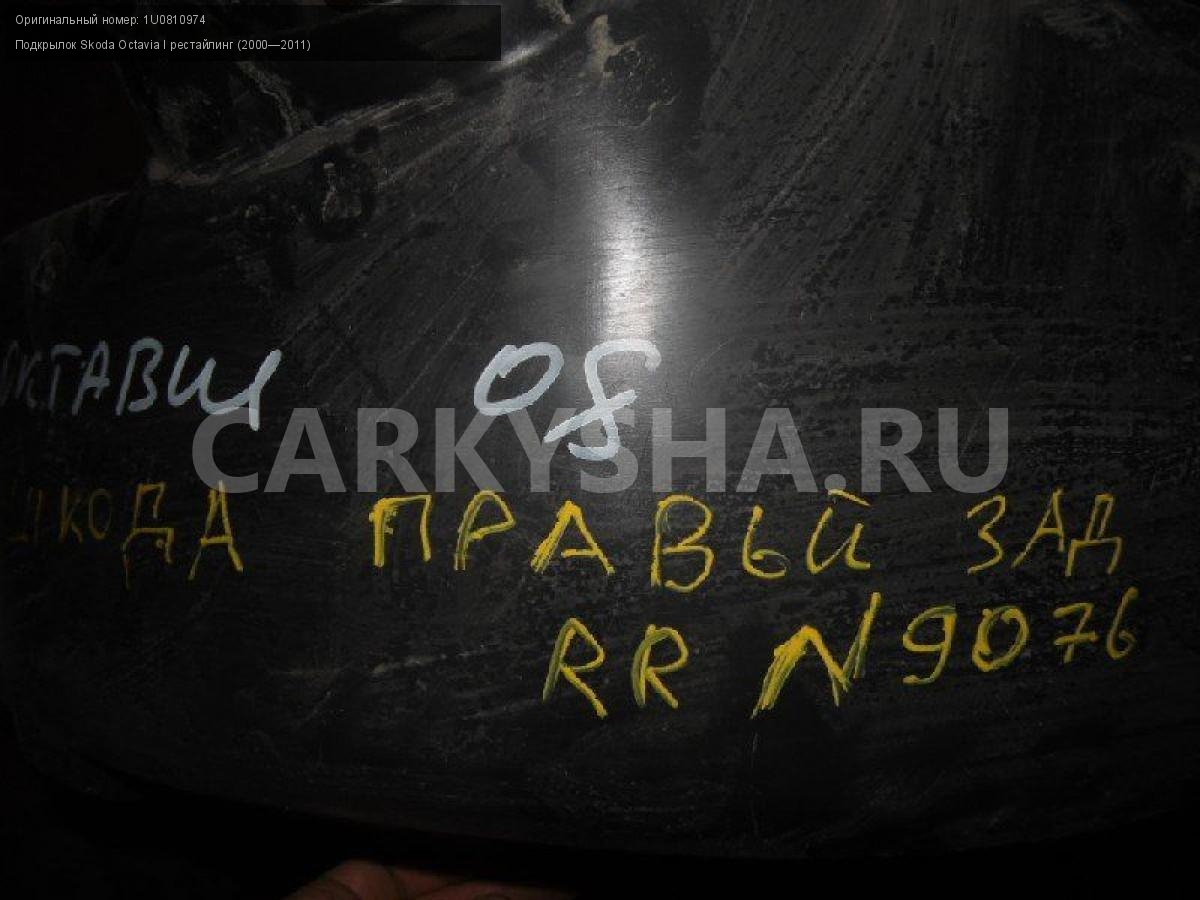 Оригинальный номер: 1U0810974
Подкрылок Skoda Octavia I рестайлинг (2000—2011)
ОКТАВИ 08
CARKYSHA.RU
ШКОДА ПРАВЫЙ ЗАД
RR N9076